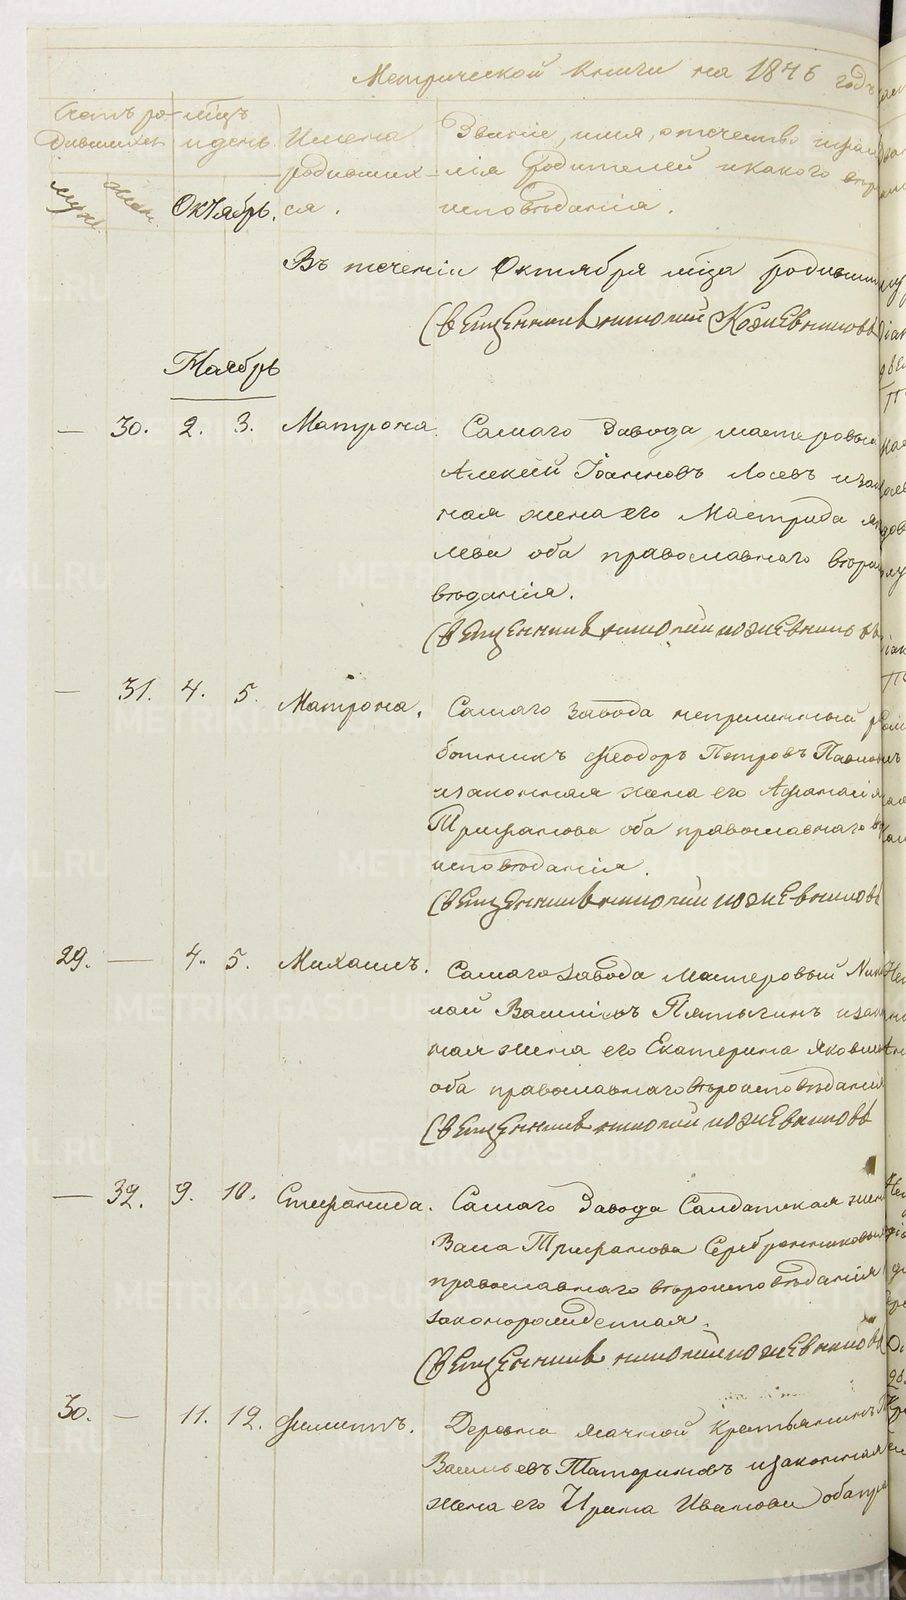 Метрической книги на 1846 годъ
Счетъ ро- мцъ
дившихся и день Имена Званіе, имя, отечество и фами
родивших- лія родителей и какого вѣро
муж. жен. Октябрь. ся. исповѣданія.
Въ теченіи Октября мца родивши
Священникъ Николай Кожевниковъ
Ноябрь
— 30. 2. 3. Матрона. Самаго завода мастеровый
Алексѣй Іоанновъ Лосевъ и закон
ная жена его Мастрида
лева оба православнаго вѣро
вѣданія.
Священникъ Николай Кожевниковъ
— 31. 4. 5. Матрона. Самаго завода непремѣнный ра
ботникъ Феодоръ Петровъ
и законная жена его Афанасія
Трифанова оба православнаго вѣро
исповѣданія.
Священникъ Николай Кожевниковъ
29. — 4. 5. Михаилъ. Самаго завода мастеровый Нико
лай Василіевъ Пятыгинъ и закон
ная жена его Екатерина Яковлева
оба православнаго вѣроисповѣданія
Священникъ Николай Кожевниковъ
— 32. 9. 10. Стефанида. Самаго завода Салдатская жена
Васса Трифанова Серебренникова
православнаго вѣроисповѣданія
законорожденная.
Священникъ Николай Кожевниковъ
30. — 11. 12. Филиппъ. Деревни крестьянинъ
Васильевъ Татариновъ и законная
жена его Ирина Иванова оба пра
METRIKI.GASO-URAL.RU